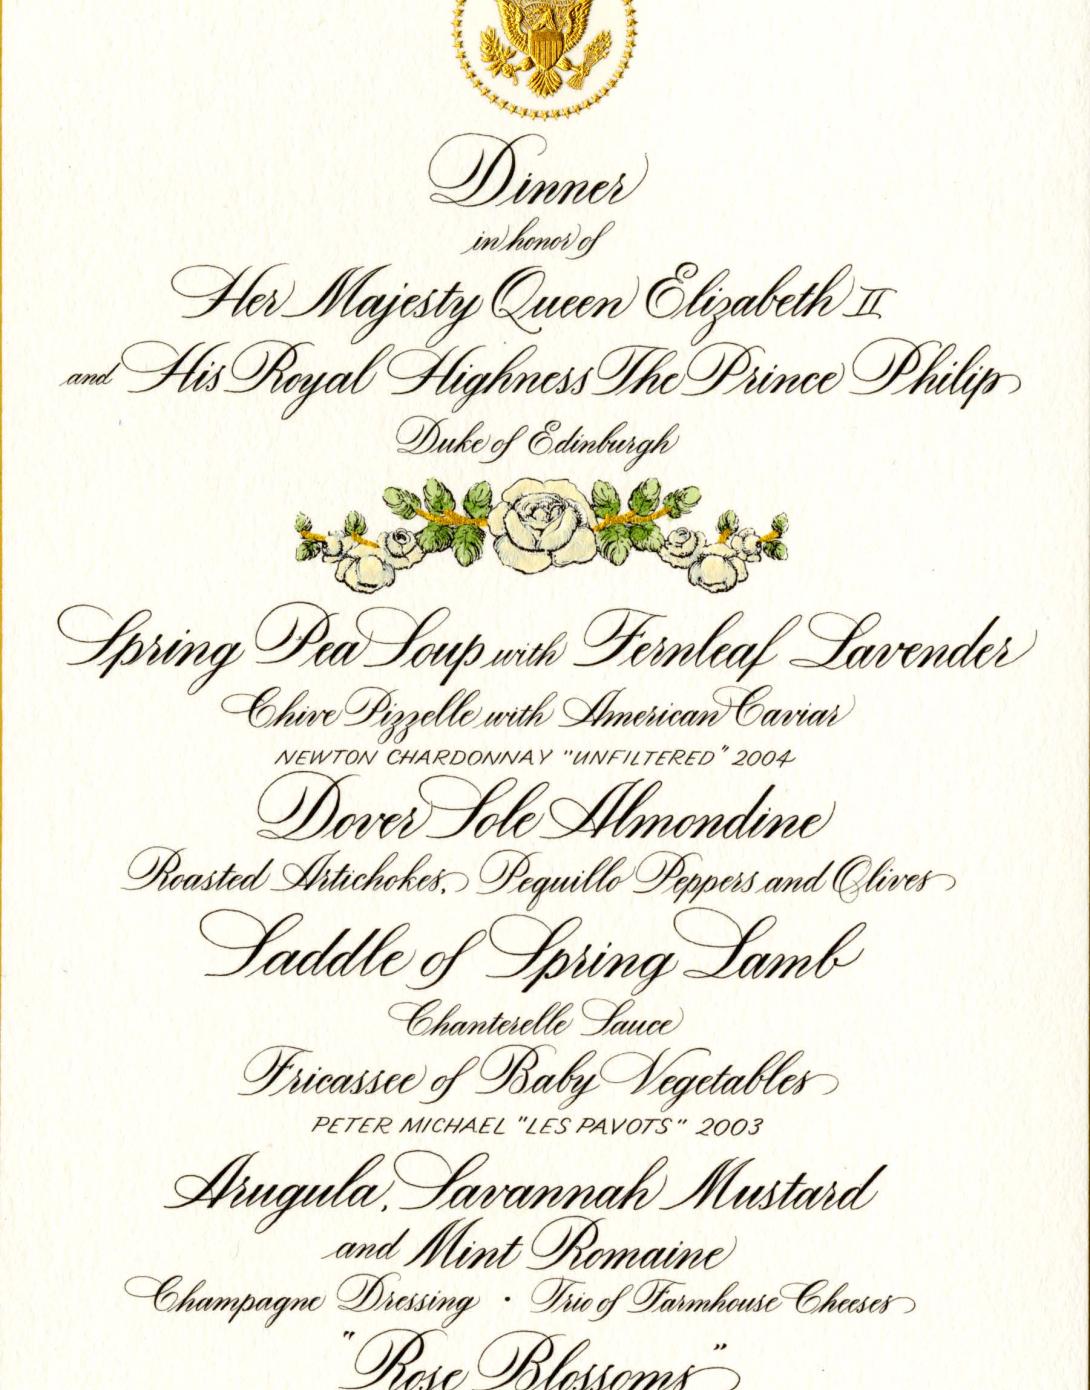 Dinner
in honor of
Her Majesty Queen Elizabeth II
and His Royal Highness The Prince Philip
Duke of Edinburgh
Spring Pea Soup with Fernleaf Lavender
Chive Pizzelle with American Caviar
NEWTON CHARDONNAY "UNFILTERED" 2004
Dover Sole Almondine
Roasted Artichokes, Pequillo Peppers and Olives
Saddle of Spring Lamb
Chanterelle Sauce
Fricassee of Baby Vegetables
PETER MICHAEL "LES PAVOTS" 2003
Arugula, Savannah Mustard
and Mint Romaine
Champagne Dressing · Trio of Farmhouse Cheeses
"Rose Blossoms"